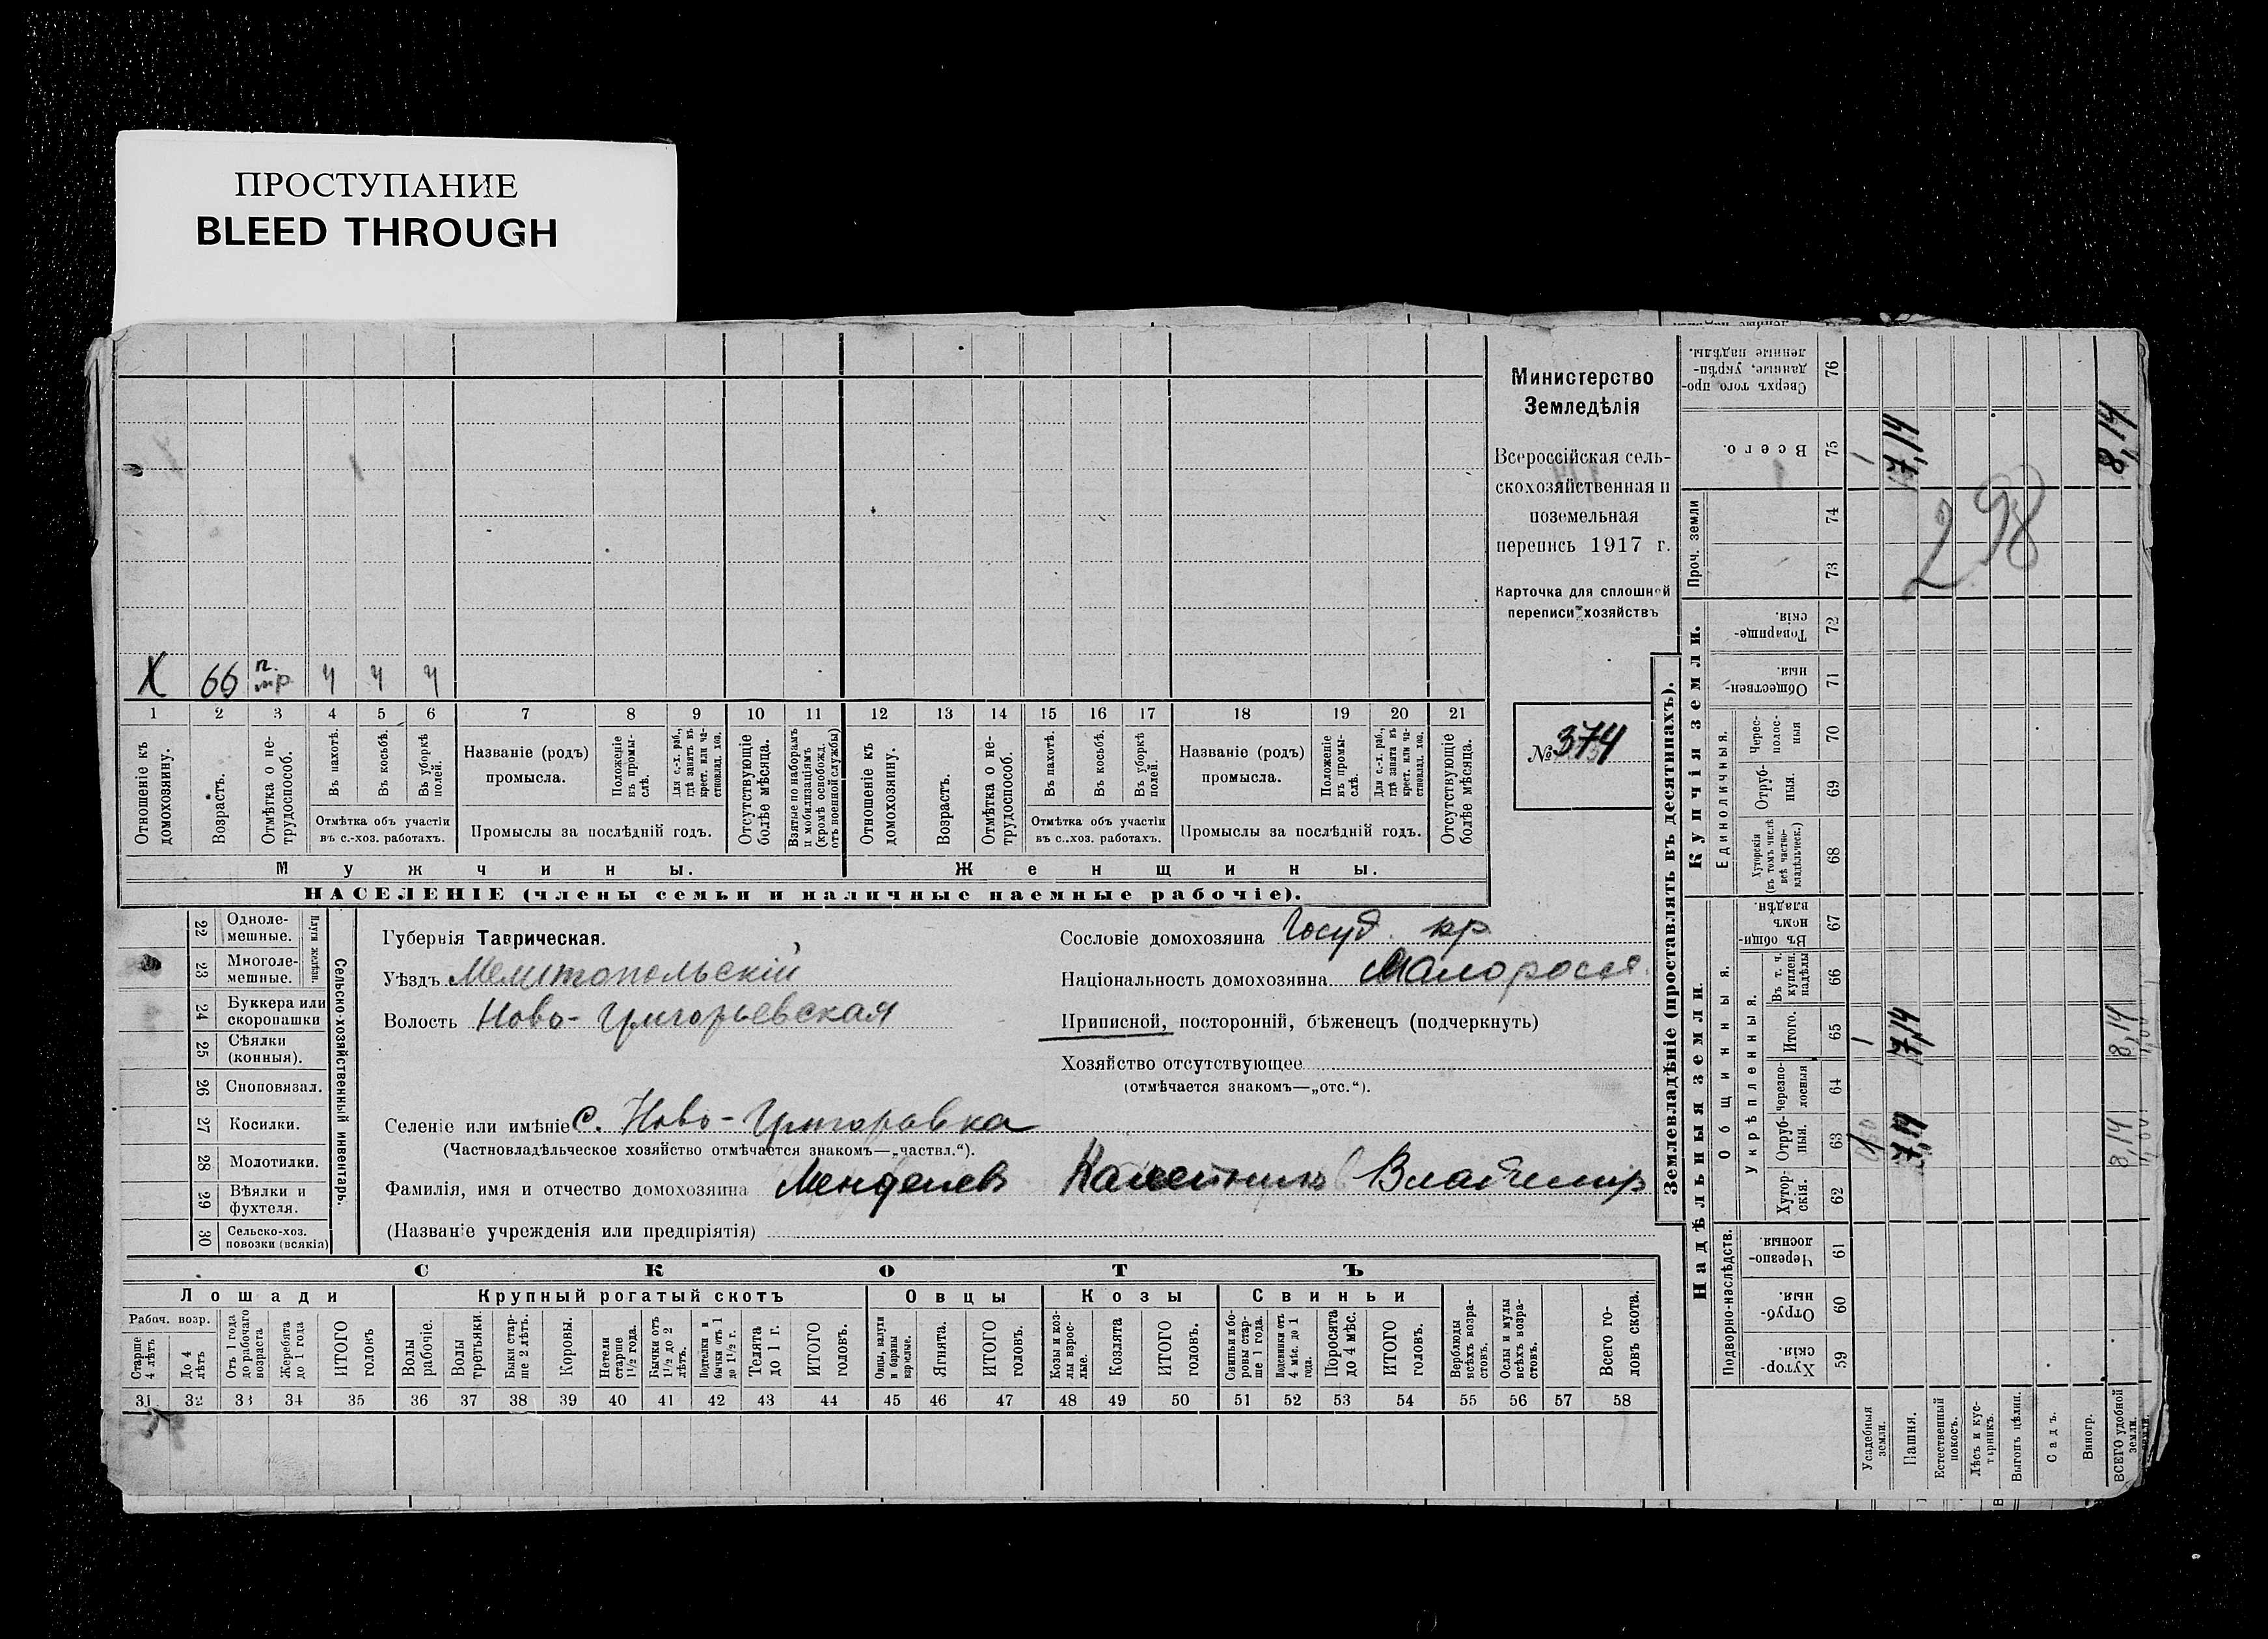 ПРОСТУПАНИЕ
BLEED THROUGH
Министерство
Земледѣлія
Всероссійская сель-
скохозяйственная и
поземельная
перепись 1917 г.
Карточка для сплошной
переписи хозяйствъ
№ 374
X 66 п. 4 4 4
1 2 3 4 5 6 7 8 9 10 11 12 13 14 15 16 17 18 19 20 21
Отношеніе къ домохозяину.
Возрастъ.
Отмѣтка о не-трудоспособ.
Въ пахотѣ.
Въ косьбѣ.
Въ уборкѣ полей.
Отмѣтка объ участіи
въ с.-хоз. работахъ.
Названіе (родъ)
промысла.
Положеніе въ промы-слѣ.
Для с.-х. раб., гдѣ занятъ въ крест. или ча-стновлад. хоз.
Промыслы за послѣдній годъ.
Отсутствующіе болѣе мѣсяца.
Взятые по наборамъ и мобилизаціямъ (кромѣ освобожд. отъ военной службы)
Отношеніе къ домохозяину.
Возрастъ.
Отмѣтка о не-трудоспособ.
Въ пахотѣ.
Въ косьбѣ.
Въ уборкѣ полей.
Отмѣтка объ участіи
въ с.-хоз. работахъ.
Названіе (родъ)
промысла.
Положеніе въ промы-слѣ.
Для с.-х. раб., гдѣ занята въ крест. или ча-стновлад. хоз.
Промыслы за послѣдній годъ.
Отсутствующіе болѣе мѣсяца.
Мужчины. Женщины.
НАСЕЛЕНІЕ (члены семьи и наличные наемные рабочіе).
Сельско-хозяйственный инвентарь.
Плуги желѣзн.
22 Одноле-мешные.
23 Многоле-мешные.
24 Буккера или скоропашки
25 Сѣялки (конныя).
26 Сноповязал.
27 Косилки.
28 Молотилки.
29 Вѣялки и фухтеля.
30 Сельско-хоз. повозки (всякія)
Губернія Таврическая.
Уѣздъ Мелитопольскій
Волость Ново-Григорьевская
Селеніе или имѣніе с. Ново-Григоровка
(Частновладѣльческое хозяйство отмѣчается знакомъ—„частвл.“).
Фамилія, имя и отчество домохозяина Владимир
(Названіе учрежденія или предпріятія)
Сословіе домохозяина Госуд. кр.
Національность домохозяина Малоросс.
Приписной, посторонній, бѣженецъ (подчеркнуть)
Хозяйство отсутствующее
(отмѣчается знакомъ—„отс.“).
СКОТЪ
Лошади Крупный рогатый скотъ Овцы Козы Свиньи
Рабоч. возр.
Старше 4 лѣтъ
До 4 лѣтъ
Отъ 1 года до рабочаго возраста
Жеребята до 1 года
ИТОГО головъ
Волы рабочіе.
Волы третьяки.
Быки стар-ше 2 лѣтъ.
Коровы.
Нетели старше 1½ года.
Бычки отъ 1½ до 2 лѣтъ.
Подтелки и бычки отъ 1 до 1½ г.
Телята до 1 г.
ИТОГО головъ.
Овцы, валухи и бараны взрослые.
Ягнята.
ИТОГО головъ.
Козы и коз-лы взрос-лые.
Козлята
ИТОГО головъ.
Свиньи и бо-ровы стар-ше 1 года.
Подсвинки отъ 4 мѣс. до 1 года.
Поросята до 4 мѣс.
ИТОГО головъ.
Верблюды всѣхъ возра-стовъ.
Ослы и мулы всѣхъ возра-стовъ.
Всего го-ловъ скота.
31 32 33 34 35 36 37 38 39 40 41 42 43 44 45 46 47 48 49 50 51 52 53 54 55 56 57 58
Землевладѣніе (проставлять въ десятинахъ).
Надѣльныя земли.
Купчія земли.
Проч. земли
Подворно-наслѣдств.
Общинныя.
Укрѣпленныя.
Единоличныя.
Хутор-скія. 59
Отруб-ныя. 60
Черезпо-лосныя. 61
Хутор-скія. 62
Отруб-ныя. 63
Черезпо-лосныя 64
Итого. 65
Въ т. ч. куплен. надѣлы 66
Въ общин-номъ владѣн. 67
Хуторскія (въ томъ числѣ всѣ частно-владѣльческ.) 68
Отруб-ныя. 69
Черес-полос-ныя 70
Обществен-ныя. 71
Товарище-скія. 72
73
74
Всего. 75
Сверхъ того про-данные, укрѣп-ленные надѣлы. 76
Усадебныя земли. 1 1 1
Пашня. 7,14 7,14 7,14
Естественный покосъ.
Лѣсъ и кус-тарникъ.
Выгонъ цѣлин.
Садъ.
Виногр.
ВСЕГО удобной земли. 8,14 8,14 8,14
298